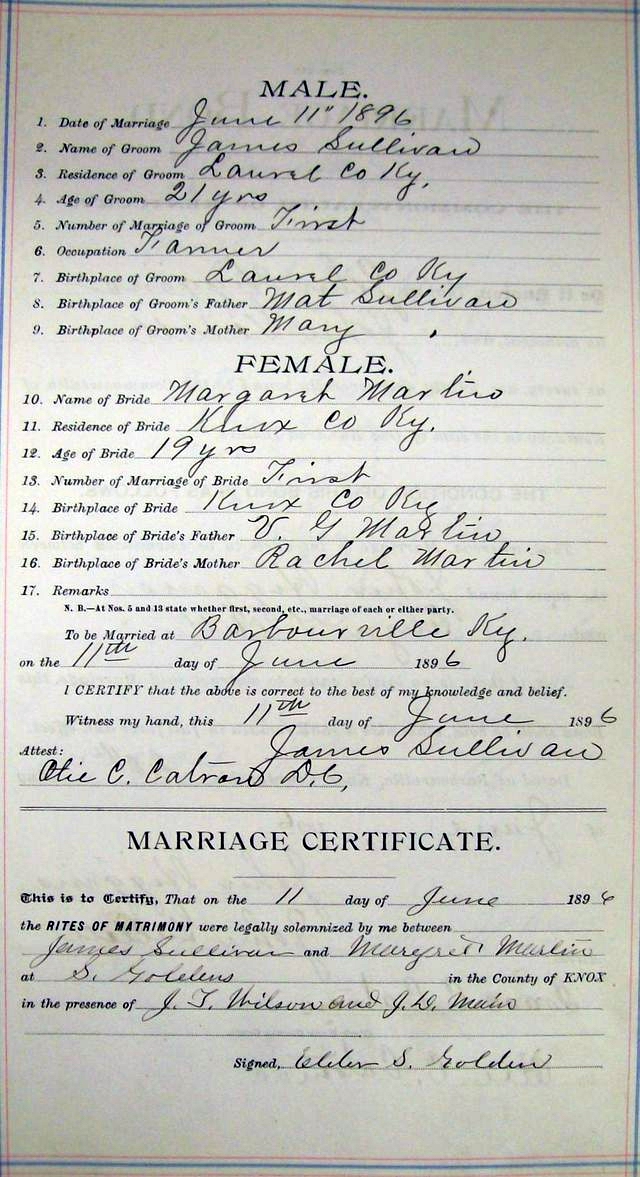 MALE.
1. Date of Marriage June 11" 1896
2. Name of Groom James Sullivan
3. Residence of Groom Laurel Co Ky.
4. Age of Groom 21 yrs
5. Number of Marriage of Groom First
6. Occupation Farmer
7. Birthplace of Groom Laurel Co Ky
8. Birthplace of Groom's Father Mat Sullivan
9. Birthplace of Groom's Mother Mary
FEMALE.
10. Name of Bride Margaret Martin
11. Residence of Bride Knox Co Ky.
12. Age of Bride 19 yrs
13. Number of Marriage of Bride First
14. Birthplace of Bride Knox Co Ky
15. Birthplace of Bride's Father V. G Martin
16. Birthplace of Bride's Mother Rachel Martin
17. Remarks
N. B.—At Nos. 5 and 13 state whether first, second, etc., marriage of each or either party.
To be Married at Barbourville Ky.
on the 11th day of June 1896
I CERTIFY that the above is correct to the best of my knowledge and belief.
Witness my hand, this 11th day of June 1896
James Sullivan
Attest:
Otie C. Catron D.C,
MARRIAGE CERTIFICATE.
This is to Certify, That on the 11 day of June 1896
the RITES OF MATRIMONY were legally solemnized by me between
James Sullivan and Margret Martin
at S. Goldens in the County of KNOX
in the presence of J. T. Wilson and J. D. Main
Signed, Elder S. Golden